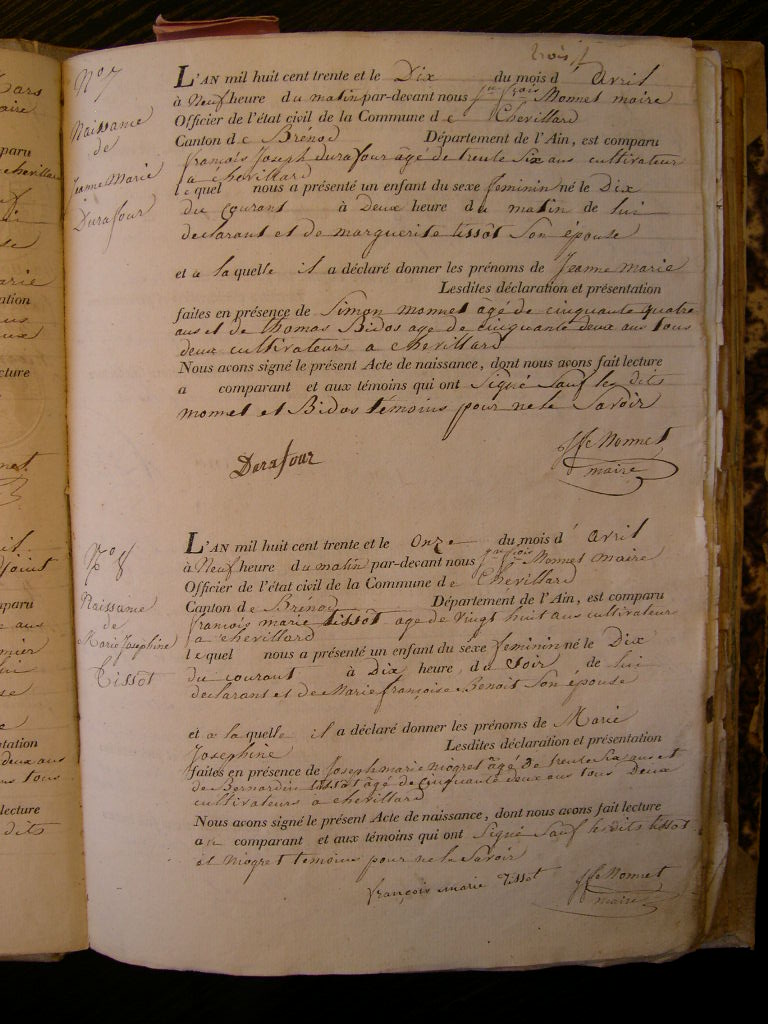 trois
N° 7
Naissance
de
Jeanne Marie
Durafour
L'AN mil huit cent trente et le Dix du mois d'avril
à Neuf heure du matin par-devant nous jph frois Monnet maire
Officier de l'état civil de la Commune de Chevillard
Canton de Brénod Département de l'Ain, est comparu
françois Joseph durafour âgé de trente Six ans cultivateur
a chevillard
lequel nous a présenté un enfant du sexe feminin né le Dix
du courant à Deux heure du matin de lui
declarant et de marguerite tissot Son épouse
et a laquelle il a déclaré donner les prénoms de Jeanne marie
Lesdites déclaration et présentation
faites en présence de Simon monnet âgé de cinquante quatre
ans et de thomas Bidos age de cinquante deux ans tous
deux cultivateurs a chevillard
Nous avons signé le présent Acte de naissance, dont nous avons fait lecture
a comparant et aux témoins qui ont Signé Sauf les dits
monnet et Bidos témoins pour ne le Savoir
Durafour
Monnet
maire
N° 8
Naissance
de
Marie Josephine
Tissot
L'AN mil huit cent trente et le onze du mois d'avril
à Neuf heure du matin par-devant nous jph frois Monnet maire
Officier de l'état civil de la Commune de Chevillard
Canton de Brénod Département de l'Ain, est comparu
francois marie tissot age de vingt huit ans cultivateur
a chevillard
lequel nous a présenté un enfant du sexe feminin né le Dix
du courant à Dix heure du Soir de lui
declarant et de Marie françoise Benoit Son épouse
et a laquelle il a déclaré donner les prénoms de Marie
Josephine Lesdites déclaration et présentation
faites en présence de Joseph marie niogret âgé de trente Six ans et
de Bernardin tissot âgé de cinquante deux ans tous Deux
cultivateurs a chevillard
Nous avons signé le présent Acte de naissance, dont nous avons fait lecture
au comparant et aux témoins qui ont Signé Sauf lesdits tissot
et niogret temoins pour ne le Savoir
françois marie Tissot
Monnet
maire